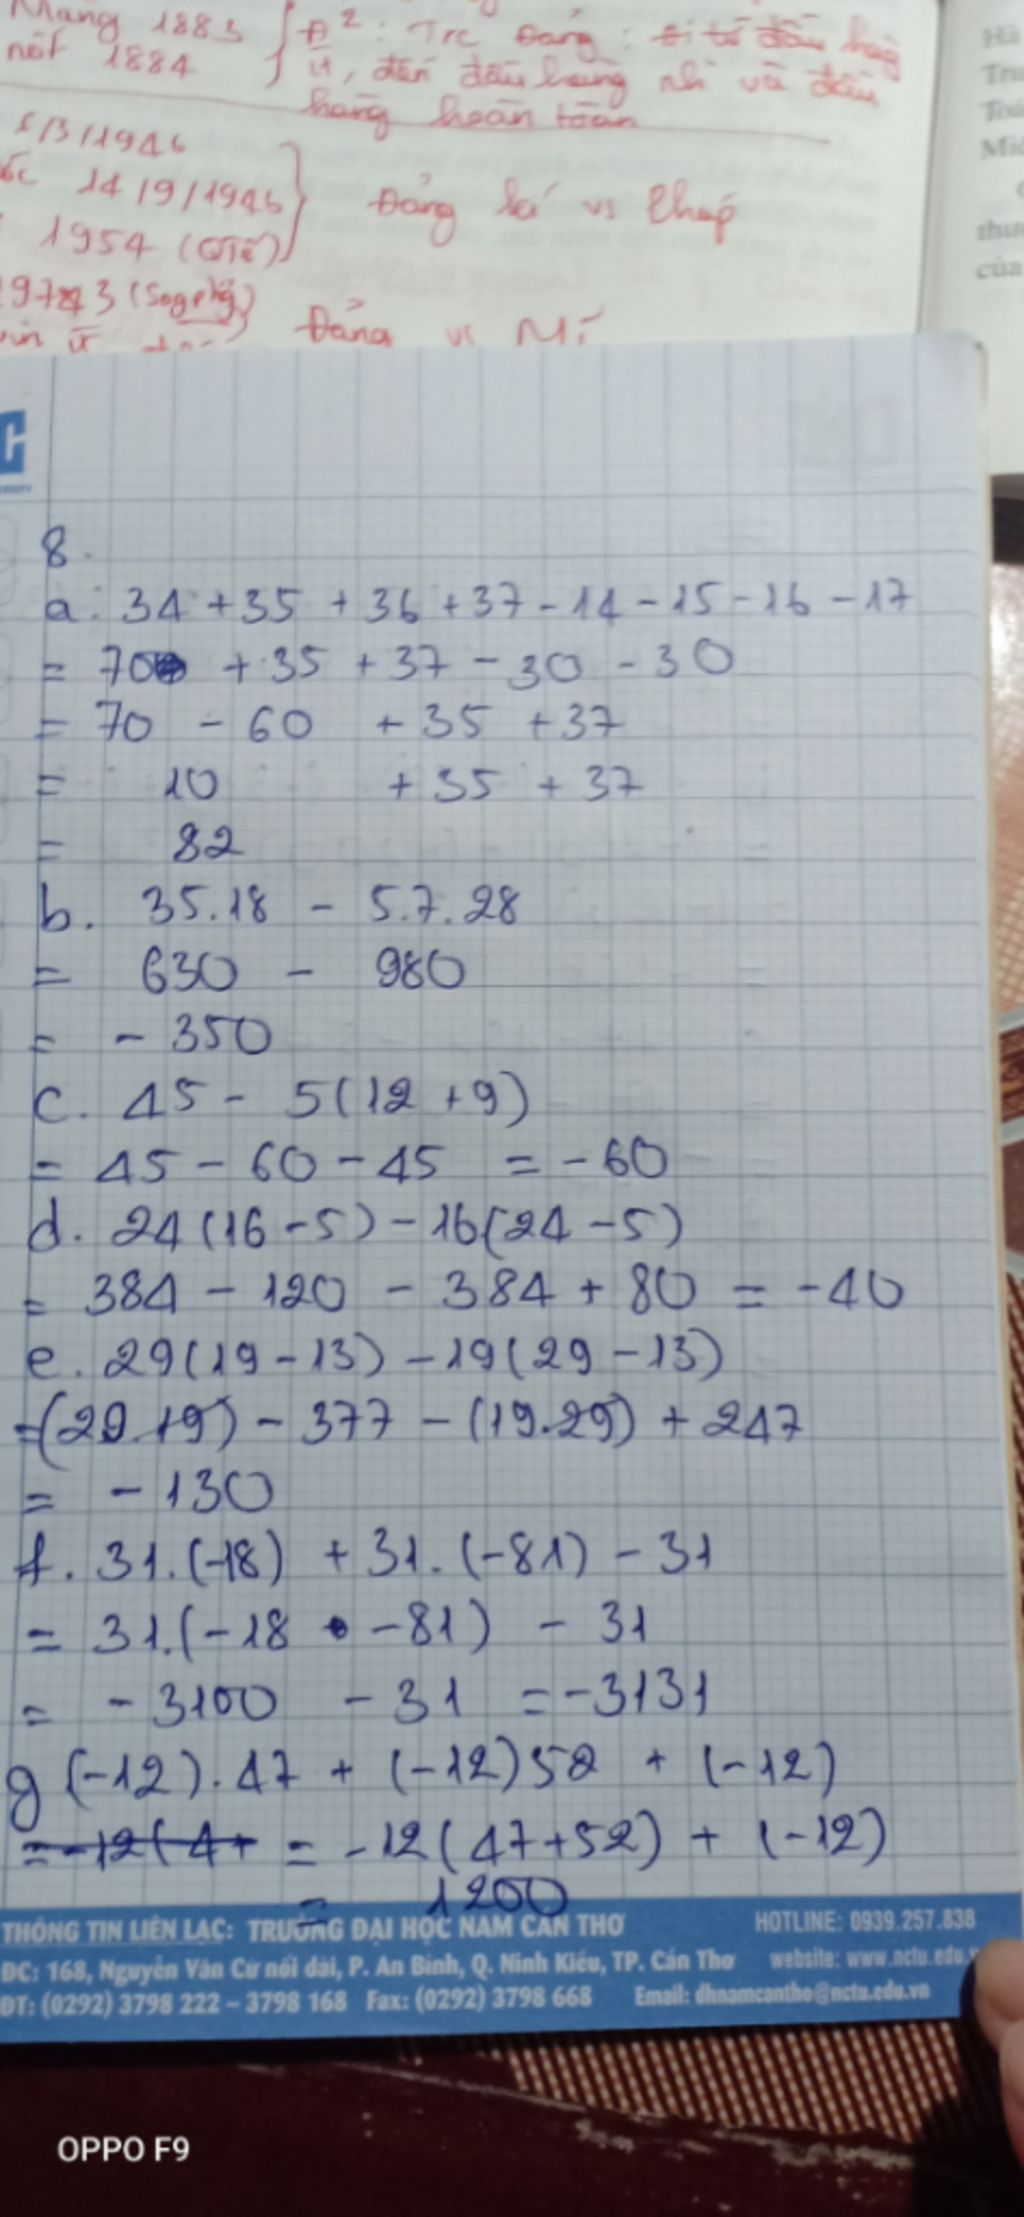 Măng 1883
nốt 1884
Đ²: Trc Đảng: đi từ đấu hàng
ư, đến đầu hàng nhì và đầu
hàng hoàn toàn
/3/1946
14/9/1946
1954 (QTế)
Đảng ta vs Pháp
Đảng vs Mĩ
Hà
Tru
Toá
Miề
thư
của
8.
a. 34 + 35 + 36 + 37 - 14 - 15 - 16 - 17
= 70 + 35 + 37 - 30 - 30
= 70 - 60 + 35 + 37
= 10 + 35 + 37
= 82
b. 35.18 - 5.7.28
= 630 - 980
= - 350
c. 45 - 5(12 + 9)
= 45 - 60 - 45 = - 60
d. 24(16 - 5) - 16(24 - 5)
= 384 - 120 - 384 + 80 = - 40
e. 29(19 - 13) - 19(29 - 13)
= (29.19) - 377 - (19.29) + 247
= - 130
f. 31.(-18) + 31.(-81) - 31
= 31.(-18 -81) - 31
= - 3100 - 31 = -3131
g (-12).47 + (-12)52 + (-12)
= -12(4+ = -12(47+52) + (-12)
= 1200
THÔNG TIN LIÊN LẠC: TRƯỜNG ĐẠI HỌC NAM CẦN THƠ HOTLINE: 0939.257.838
ĐC: 168, Nguyễn Văn Cừ nối dài, P. An Bình, Q. Ninh Kiều, TP. Cần Thơ website: www.nctu.edu.v
ĐT: (0292) 3798 222 – 3798 168 Fax: (0292) 3798 668 Email: dhnamcantho@nctu.edu.vn
OPPO F9